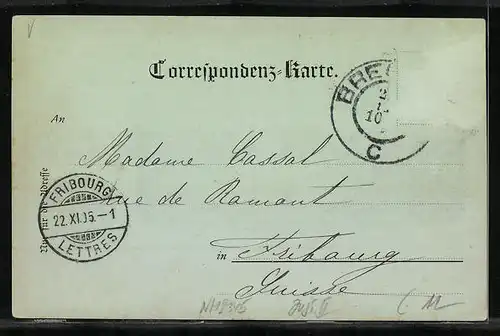 Correspondenz-Karte.
BRE
2
10
C
An
Madame Cassal
rue de Romont
in Fribourg
Suisse
Nur für die Adresse
FRIBOURG
22.XI.05.-1
LETTRES